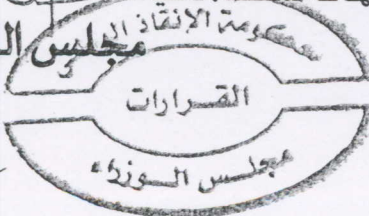 مجلس
حكومة الإنقاذ
القرارات
مجلس الوزراء